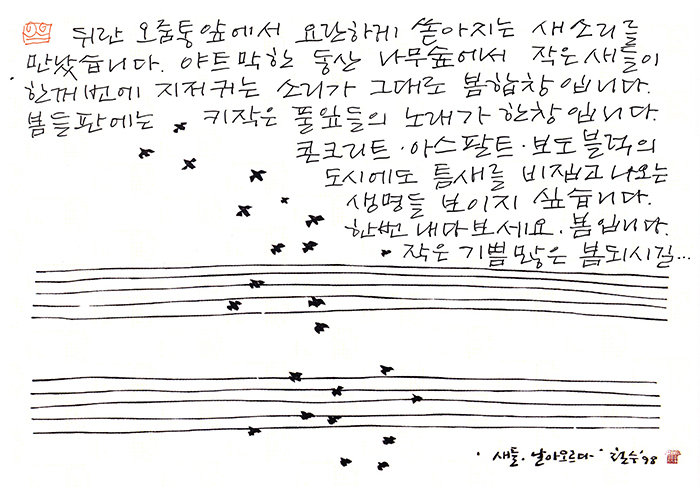 뒤란 오줌통앞에서 요란하게 쏟아지는 새소리를
만났습니다. 야트막한 동산 나무숲에서 작은새들이
한꺼번에 지저귀는 소리가 그대로 봄합창입니다.
봄들판에는 키작은 풀잎들의 노래가 한창입니다.
콘크리트·아스팔트·보도블럭의
도시에도 틈새를 비집고 나오는
생명들 보이지 싶습니다.
한번 내다보세요. 봄입니다.
작은 기쁨많은 봄되시길...
· 새들·날아오르다· 철수 '98